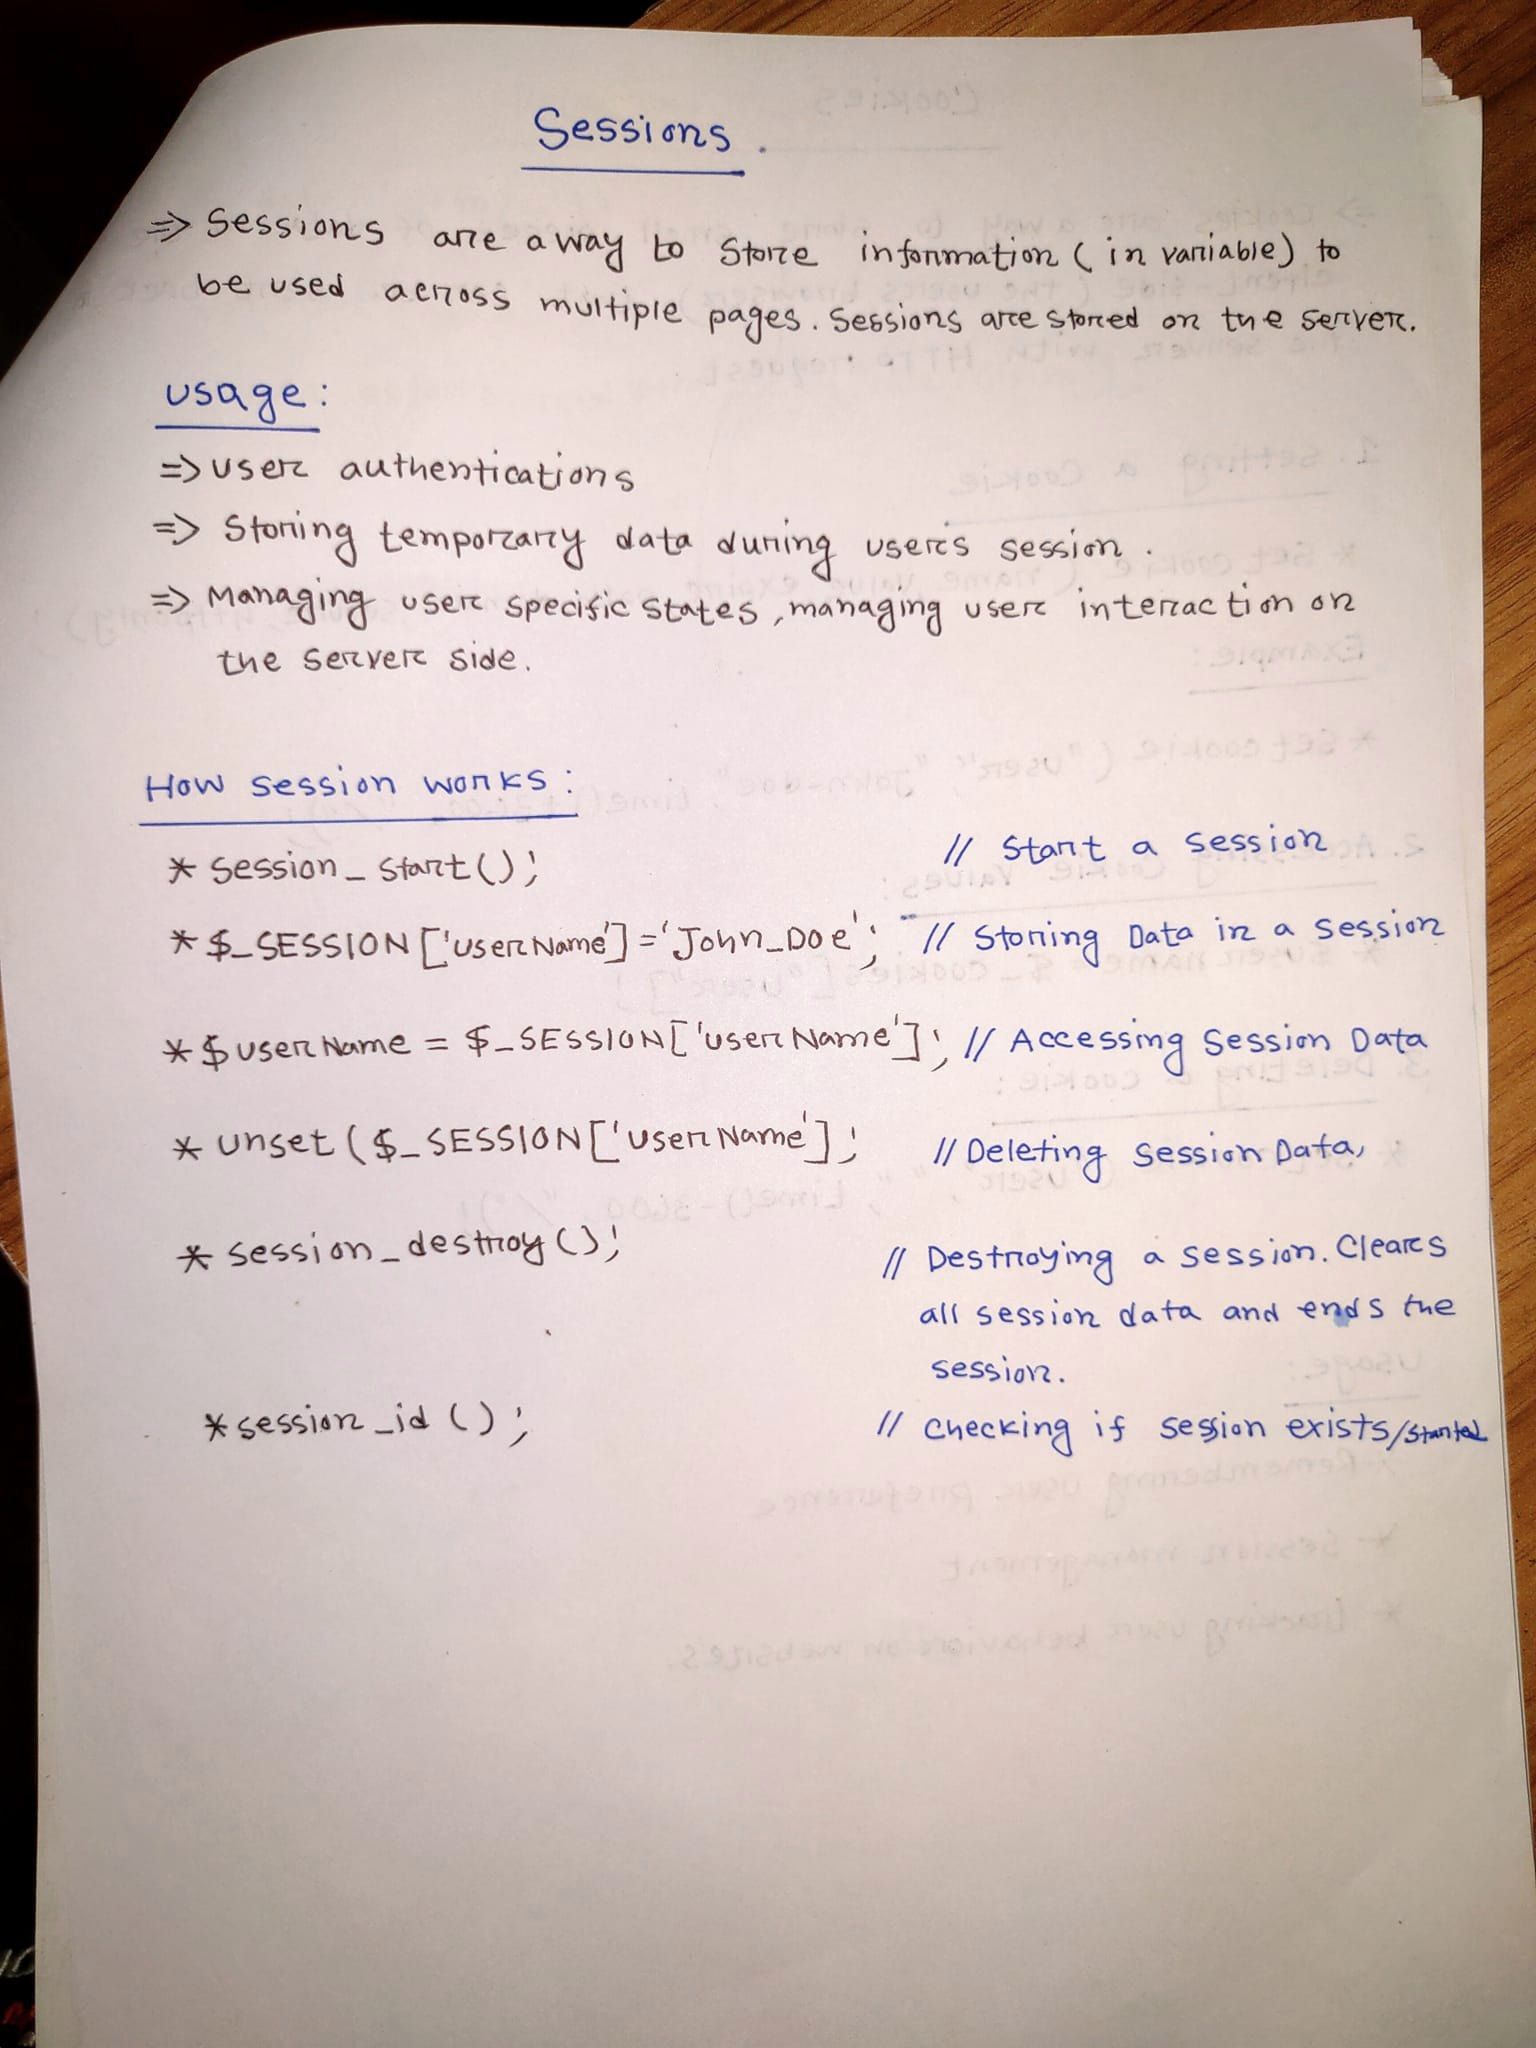 Sessions.
=> Sessions are a way to store information (in variable) to
be used across multiple pages. Sessions are stored on the server.
usage:
=> user authentications
=> Storing temporary data during users session.
=> Managing user specific states, managing user interaction on
the server side.
How session works:
* session_start(); // Start a session
* $_SESSION['userName']='John_Doe'; // Storing Data in a session
* $userName = $_SESSION['userName']; // Accessing Session Data
* unset($_SESSION['userName']; // Deleting Session Data,
* session_destroy(); // Destroying a session. Clears
all session data and ends the
session.
* session_id(); // checking if session exists/started